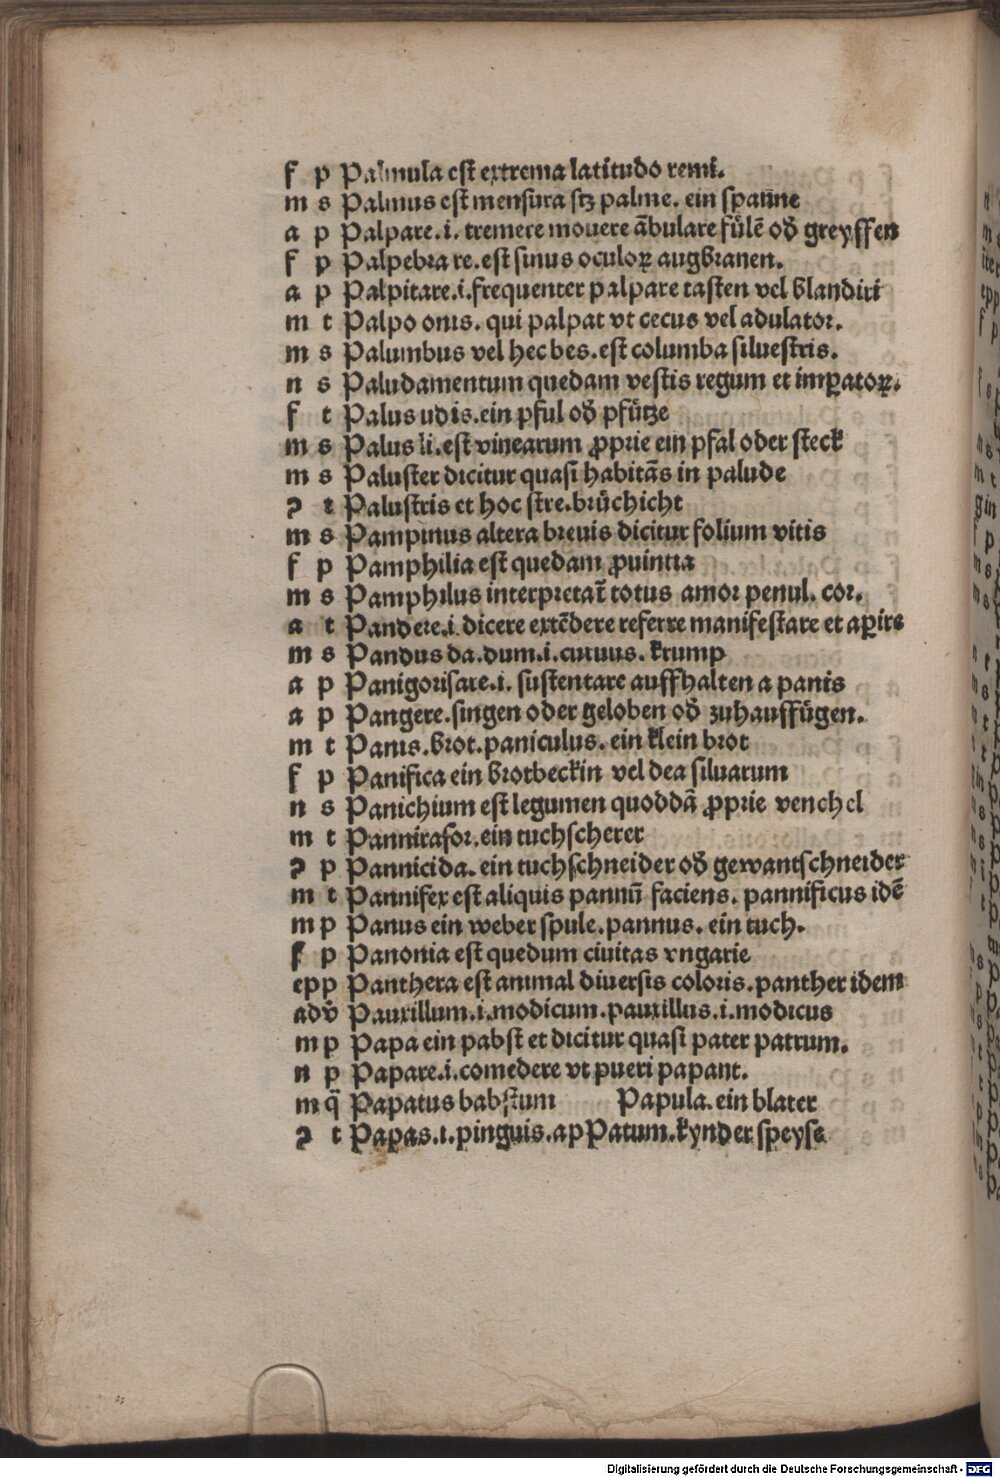 f p Palmula est extrema latitudo remi.
m s Palmus est mensura stz palme. ein spanne
a p Palpare.i. tremere mouere ābulare fülē od̄ greyffen
f p Palpebra re.est sinus oculoꝝ augbranen.
a p Palpitare.i.frequenter palpare tasten vel blandiri
m t Palpo onis. qui palpat vt cecus vel adulator.
m s Palumbus vel hec bes.est columba siluestris.
n s Paludamentum quedam vestis regum et imꝑatoꝝ.
f t Palus udis.ein pful od̄ pfütze
m s Palus li.est vinearum ꝓprie ein pfal oder steck
m s Paluster dicitur quasi habitās in palude
ꝛ t Palustris et hoc stre.brüchicht
m s Pampinus altera breuis dicitur folium vitis
f p Pamphilia est quedam ꝓuintia
m s Pamphilus interpretat̄ totus amor penul. cor.
a t Pandere.i.dicere extēdere referre manifestare et aꝑire
m s Pandus da.dum.i.curuus. krump
a p Panigorisare.i. sustentare auffhalten a panis
a p Pangere.singen oder geloben od̄ zuhauffügen.
m t Panis.brot.paniculus. ein klein brot
f p Panifica ein brotbeckin vel dea siluarum
n s Panichium est legumen quoddā ꝓprie venchel
m t Pannirasor.ein tuchscherer
ꝛ p Pannicida. ein tuchschneider od̄ gewantschneider
m t Pannifex est aliquis pannū faciens. pannificus idē
m p Panus ein weber spule.pannus. ein tuch.
f p Panonia est quedum ciuitas vngarie
epp Panthera est animal diuersis coloris.panther idem
adv̄ Pauxillum.i.modicum.pauxillus.i.modicus
m p Papa ein pabst et dicitur quasi pater patrum.
n p Papare.i.comedere vt pueri papant.
m q̄ Papatus babstum Papula.ein blater
ꝛ t Papas.i.pinguis.apPatum.kynder speyse
Digitalisierung gefördert durch die Deutsche Forschungsgemeinschaft - DFG